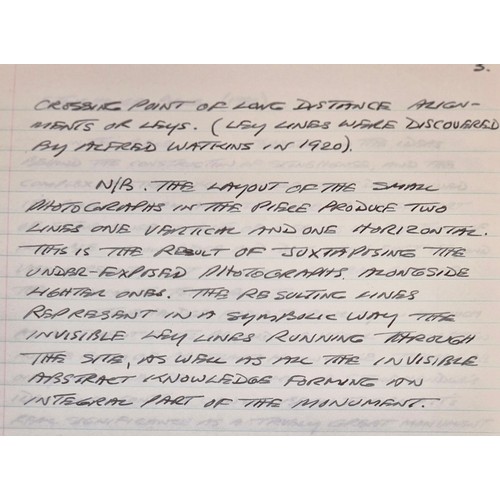 3.
CROSSING POINT OF LONG DISTANCE ALIGN-
MENTS OR LEYS. (LEY LINES WERE DISCOVERED
BY ALFRED WATKINS IN 1920).
N/B. THE LAYOUT OF THE SMALL
PHOTOGRAPHS IN THE PIECE PRODUCE TWO
LINES ONE VERTICAL AND ONE HORIZONTAL.
THIS IS THE RESULT OF JUXTAPOSING THE
UNDER-EXPOSED PHOTOGRAPHS. ALONGSIDE
LIGHTER ONES. THE RESULTING LINES
REPRESENT IN A SYMBOLIC WAY THE
INVISIBLE LEY LINES RUNNING THROUGH
THE SITE, AS WELL AS ALL THE INVISIBLE
ABSTRACT KNOWLEDGE FORMING AN
INTEGRAL PART OF THE MONUMENT.